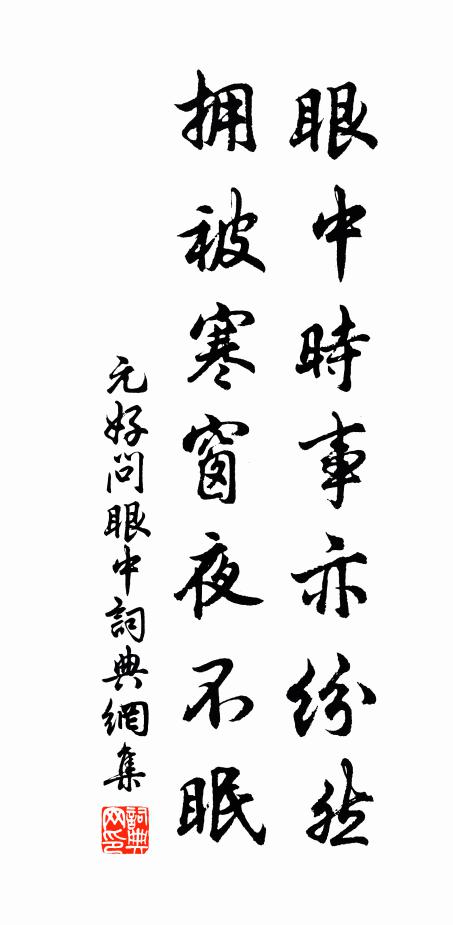 眼中時事亦紛然
擁被寒窗夜不眠
元好問眼中詞典網集
詞典網印